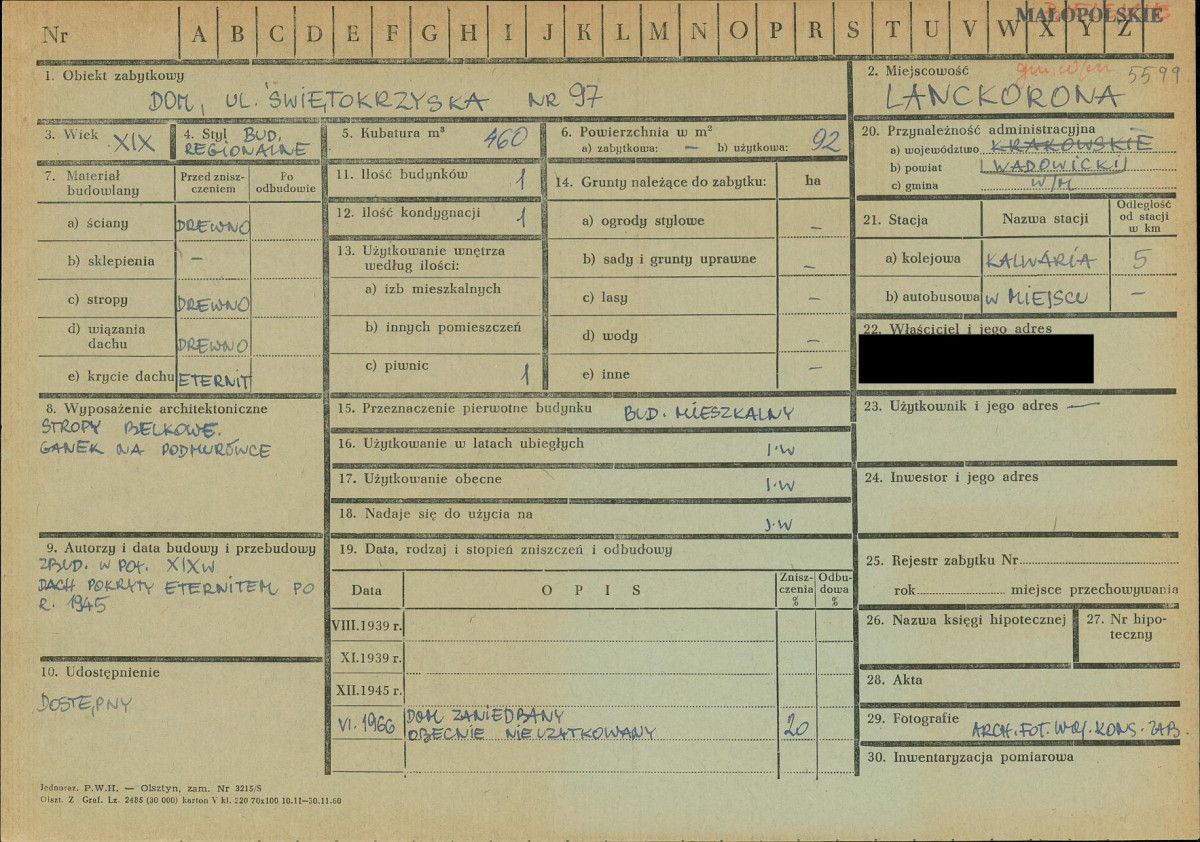 Nr A B C D E F G H I J K L M N O P R S T U V W X Y Z
MAŁOPOLSKIE
1. Obiekt zabytkowy
DOM, UL. ŚWIĘTOKRZYSKA NR 97
2. Miejscowość
5599
LANCKORONA
3. Wiek XIX
4. Styl BUD.
REGIONALNE
5. Kubatura m³ 460
6. Powierzchnia w m²
a) zabytkowa: — b) użytkowa: 92
7. Materiał budowlany
Przed zniszczeniem
Po odbudowie
a) ściany DREWNO
b) sklepienia –
c) stropy DREWNO
d) wiązania dachu DREWNO
e) krycie dachu ETERNIT
8. Wyposażenie architektoniczne
STROPY BELKOWE.
GANEK NA PODMURÓWCE
9. Autorzy i data budowy i przebudowy
ZBUD. W POŁ. XIX W
DACH POKRYTY ETERNITEM PO
R. 1945
10. Udostępnienie
DOSTĘPNY
11. Ilość budynków 1
12. Ilość kondygnacji 1
13. Użytkowanie wnętrza
według ilości:
a) izb mieszkalnych
b) innych pomieszczeń
c) piwnic 1
14. Grunty należące do zabytku: ha
a) ogrody stylowe –
b) sady i grunty uprawne –
c) lasy –
d) wody –
e) inne –
15. Przeznaczenie pierwotne budynku BUD. MIESZKALNY
16. Użytkowanie w latach ubiegłych J.W
17. Użytkowanie obecne J.W
18. Nadaje się do użycia na J.W
19. Data, rodzaj i stopień zniszczeń i odbudowy
Data OPIS Zniszczenia % Odbudowa %
VIII.1939 r.
XI.1939 r.
XII.1945 r.
VI. 1966 DOM ZANIEDBANY
OBECNIE NIEUŻYTKOWANY 20
20. Przynależność administracyjna
a) województwo KRAKOWSKIE
b) powiat WADOWICKI
c) gmina W/M
21. Stacja Nazwa stacji Odległość od stacji w km
a) kolejowa KALWARIA 5
b) autobusowa W MIEJSCU –
22. Właściciel i jego adres
23. Użytkownik i jego adres —
24. Inwestor i jego adres
25. Rejestr zabytku Nr
rok miejsce przechowywania
26. Nazwa księgi hipotecznej
27. Nr hipoteczny
28. Akta
29. Fotografie ARCH. FOT. WOJ. KONS. ZAB.
30. Inwentaryzacja pomiarowa
Jednoraz. P.W.H. — Olsztyn, zam. Nr 3215/S
Olszt. Z Graf. Lz. 2485 (30 000) karton V kl. 220 70x100 10.11—30.11.60